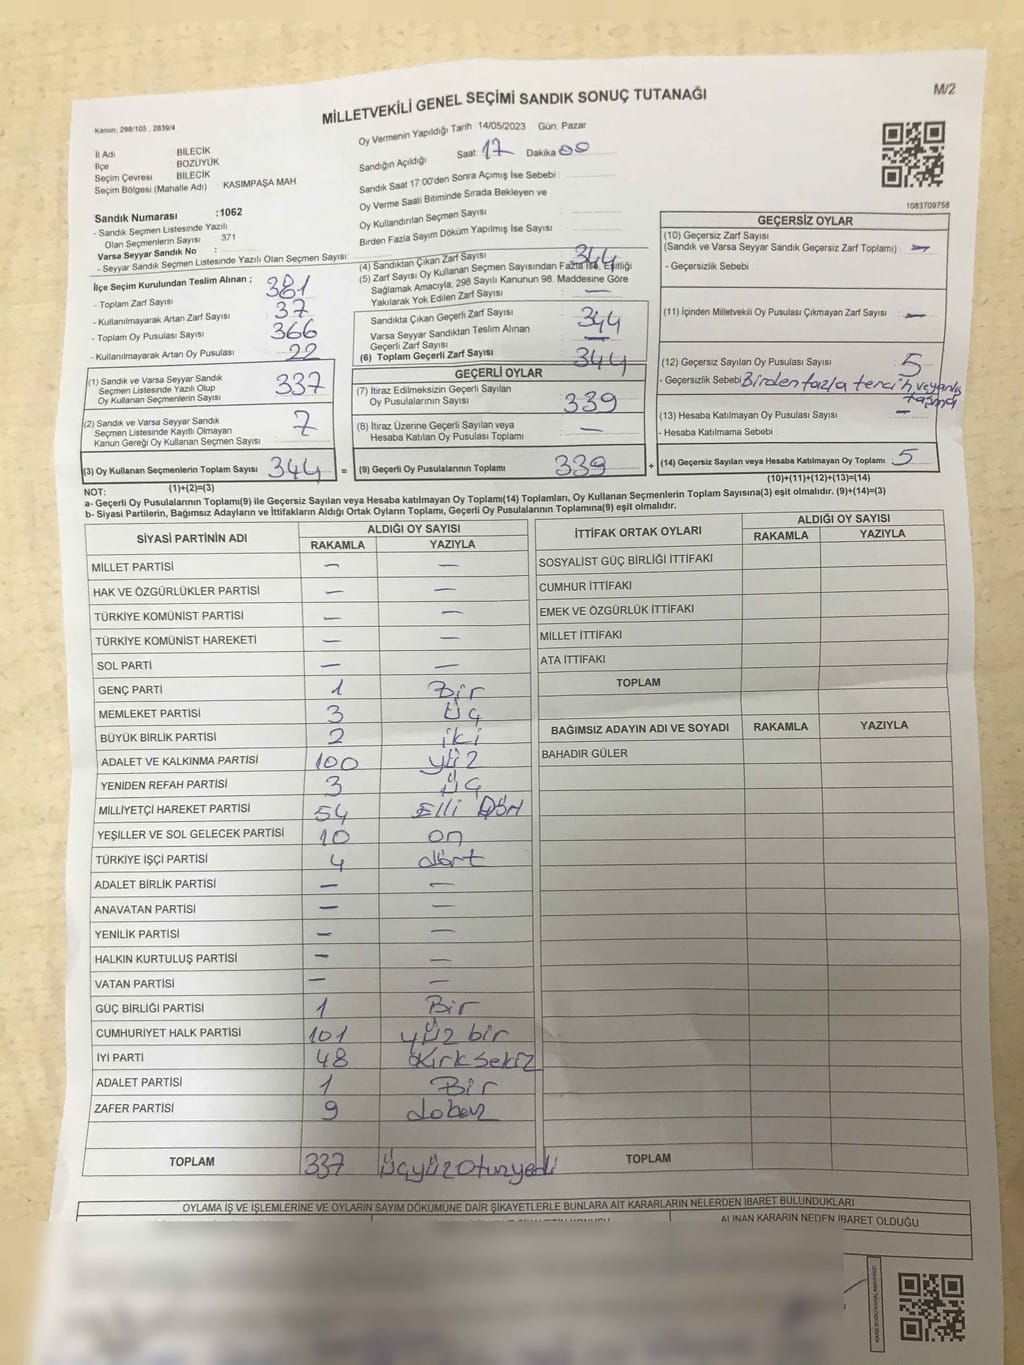 M/2
MİLLETVEKİLİ GENEL SEÇİMİ SANDIK SONUÇ TUTANAĞI
Kanun, 298/105 , 2839/4
İl Adı BİLECİK
İlçe BOZÜYÜK
Seçim Çevresi BİLECİK
Seçim Bölgesi (Mahalle Adı) KASIMPAŞA MAH
Sandık Numarası :1062
- Sandık Seçmen Listesinde Yazılı
Olan Seçmenlerin Sayısı 371
Varsa Seyyar Sandık No :
- Seyyar Sandık Seçmen Listesinde Yazılı Olan Seçmen Sayısı:
Oy Vermenin Yapıldığı Tarih 14/05/2023 Gün: Pazar
Sandığın Açıldığı Saat: 17 Dakika 00
Sandık Saat 17:00'den Sonra Açımış İse Sebebi :
Oy Verme Saati Bitiminde Sırada Bekleyen ve
Oy Kullandırılan Seçmen Sayısı
Birden Fazla Sayım Döküm Yapılmış İse Sayısı
1083709758
İlçe Seçim Kurulundan Teslim Alınan ;
- Toplam Zarf Sayısı 381
- Kullanılmayarak Artan Zarf Sayısı 37
- Toplam Oy Pusulası Sayısı 366
- Kullanılmayarak Artan Oy Pusulası 22
(1) Sandık ve Varsa Seyyar Sandık
Seçmen Listesinde Yazılı Olup
Oy Kullanan Seçmenlerin Sayısı 337
(2) Sandık ve Varsa Seyyar Sandık
Seçmen Listesinde Kayıtlı Olmayan
Kanun Gereği Oy Kullanan Seçmen Sayısı 7
(3) Oy Kullanan Seçmenlerin Toplam Sayısı 344 =
(1)+(2)=(3)
(4) Sandıktan Çıkan Zarf Sayısı 344
(5) Zarf Sayısı Oy Kullanan Seçmen Sayısından Fazla İse, Eşitliği
Sağlamak Amacıyla, 298 Sayılı Kanunun 98. Maddesine Göre
Yakılarak Yok Edilen Zarf Sayısı —
Sandıkta Çıkan Geçerli Zarf Sayısı 344
Varsa Seyyar Sandıktan Teslim Alınan
Geçerli Zarf Sayısı —
(6) Toplam Geçerli Zarf Sayısı 344
GEÇERLİ OYLAR
(7) İtiraz Edilmeksizin Geçerli Sayılan
Oy Pusulalarının Sayısı 339
(8) İtiraz Üzerine Geçerli Sayılan veya
Hesaba Katılan Oy Pusulası Toplamı —
(9) Geçerli Oy Pusulalarının Toplamı 339 +
GEÇERSİZ OYLAR
(10) Geçersiz Zarf Sayısı
(Sandık ve Varsa Seyyar Sandık Geçersiz Zarf Toplamı) —
- Geçersizlik Sebebi
(11) İçinden Milletvekili Oy Pusulası Çıkmayan Zarf Sayısı —
(12) Geçersiz Sayılan Oy Pusulası Sayısı 5
- Geçersizlik Sebebi Birden fazla tercih veyanlış
taşma
(13) Hesaba Katılmayan Oy Pusulası Sayısı —
- Hesaba Katılmama Sebebi
(14) Geçersiz Sayılan veya Hesaba Katılmayan Oy Toplamı 5
(10)+(11)+(12)+(13)=(14)
NOT:
a- Geçerli Oy Pusulalarının Toplamı(9) ile Geçersiz Sayılan veya Hesaba katılmayan Oy Toplamı(14) Toplamları, Oy Kullanan Seçmenlerin Toplam Sayısına(3) eşit olmalıdır. (9)+(14)=(3)
b- Siyasi Partilerin, Bağımsız Adayların ve İttifakların Aldığı Ortak Oyların Toplamı, Geçerli Oy Pusulalarının Toplamına(9) eşit olmalıdır.
SİYASİ PARTİNİN ADI ALDIĞI OY SAYISI
RAKAMLA YAZIYLA
MİLLET PARTİSİ — —
HAK VE ÖZGÜRLÜKLER PARTİSİ — —
TÜRKİYE KOMÜNİST PARTİSİ — —
TÜRKİYE KOMÜNİST HAREKETİ — —
SOL PARTİ — —
GENÇ PARTİ 1 Bir
MEMLEKET PARTİSİ 3 Üç
BÜYÜK BİRLİK PARTİSİ 2 iki
ADALET VE KALKINMA PARTİSİ 100 yüz
YENİDEN REFAH PARTİSİ 3 Üç
MİLLİYETÇİ HAREKET PARTİSİ 54 Elli Dört
YEŞİLLER VE SOL GELECEK PARTİSİ 10 on
TÜRKİYE İŞÇİ PARTİSİ 4 dört
ADALET BİRLİK PARTİSİ — —
ANAVATAN PARTİSİ — —
YENİLİK PARTİSİ — —
HALKIN KURTULUŞ PARTİSİ — —
VATAN PARTİSİ — —
GÜÇ BİRLİĞİ PARTİSİ 1 Bir
CUMHURİYET HALK PARTİSİ 101 yüz bir
İYİ PARTİ 48 Kırk sekiz
ADALET PARTİSİ 1 Bir
ZAFER PARTİSİ 9 dokuz
TOPLAM 337 üçyüz otuzyedi
İTTİFAK ORTAK OYLARI ALDIĞI OY SAYISI
RAKAMLA YAZIYLA
SOSYALİST GÜÇ BİRLİĞİ İTTİFAKI
CUMHUR İTTİFAKI
EMEK VE ÖZGÜRLÜK İTTİFAKI
MİLLET İTTİFAKI
ATA İTTİFAKI
TOPLAM
BAĞIMSIZ ADAYIN ADI VE SOYADI RAKAMLA YAZIYLA
BAHADIR GÜLER
TOPLAM
OYLAMA İŞ VE İŞLEMLERİNE VE OYLARIN SAYIM DÖKÜMÜNE DAİR ŞİKAYETLERLE BUNLARA AİT KARARLARIN NELERDEN İBARET BULUNDUKLARI
ALINAN KARARIN NEDEN İBARET OLDUĞU